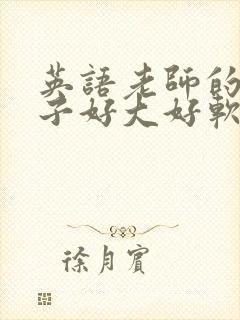 英語老師的
子好大好軟
徐月賓